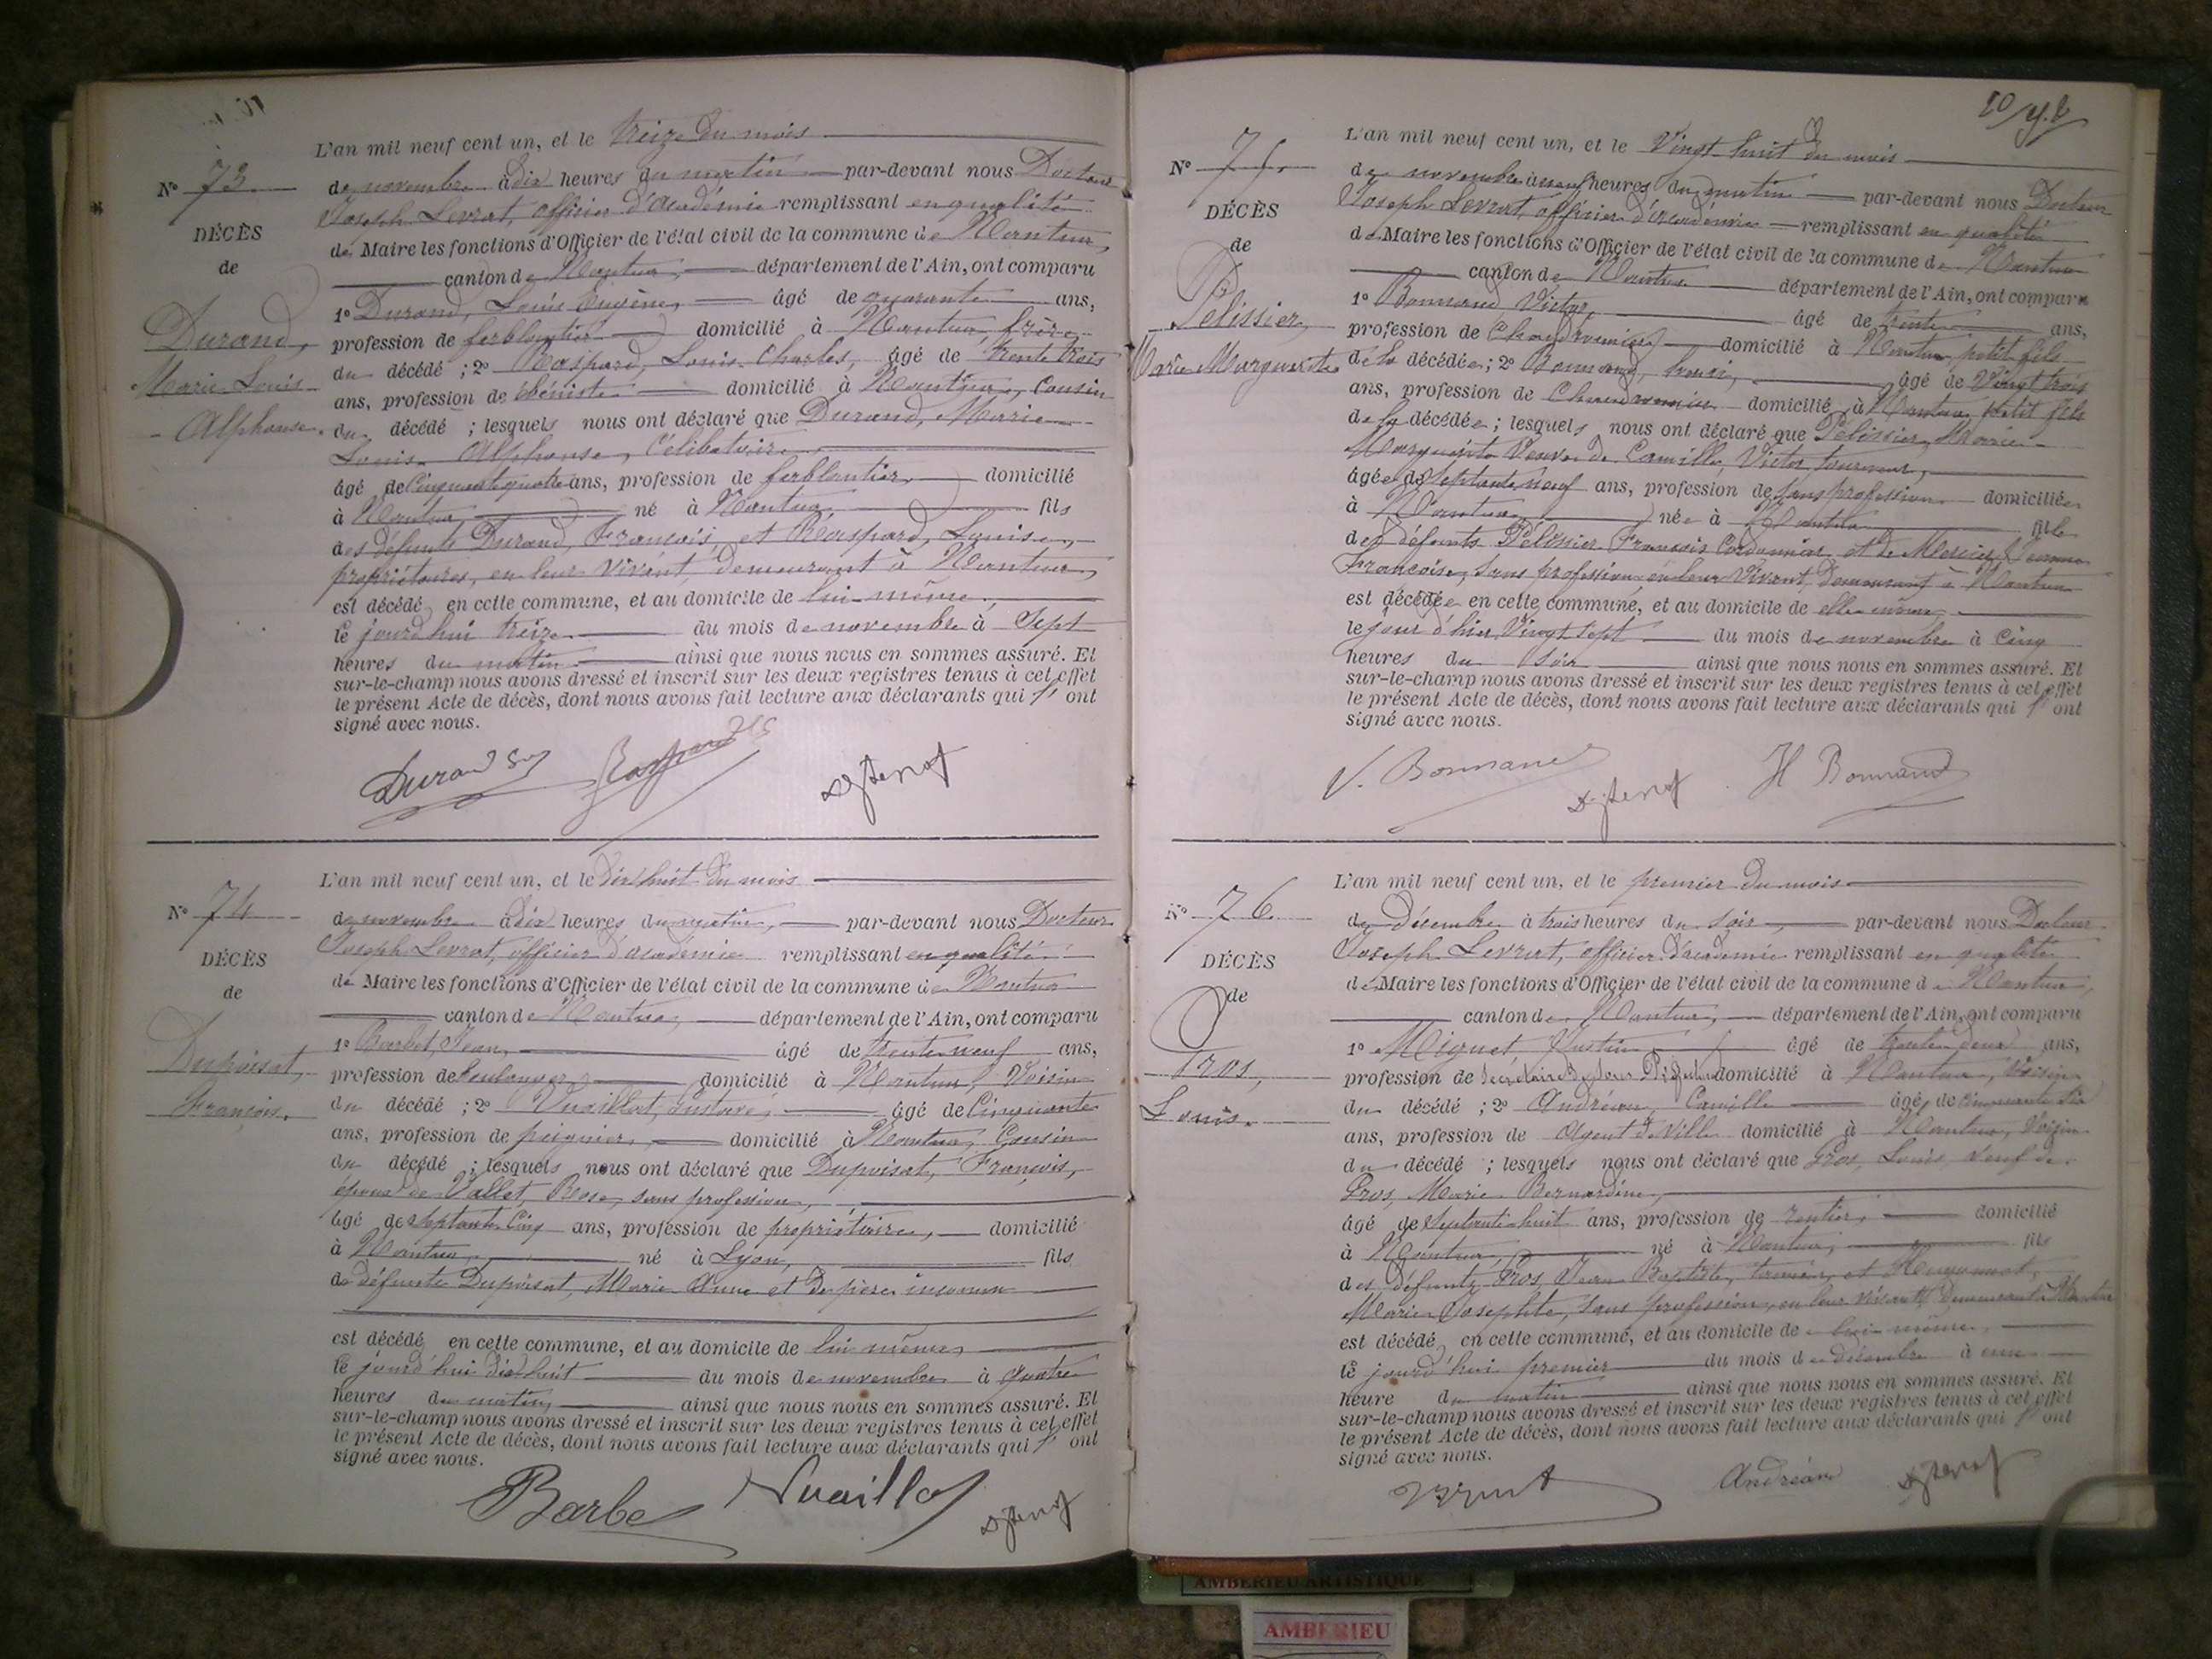 L'an mil neuf cent un, et le treize du mois
No 73
de novembre à dix heures du matin par-devant nous Docteur
Joseph Levrat, officier d'académie remplissant en qualité
DÉCÈS
de Maire les fonctions d'Officier de l'état civil de la commune de Nantua,
de
canton de Nantua, département de l'Ain, ont comparu
1o Durand, Louis Eugène, âgé de quarante ans,
Durand,
profession de ferblantier domicilié à Nantua, frère
du décédé ; 2o Raspard, Louis Charles, âgé de trente trois
Marie Louis
ans, profession de ébéniste domicilié à Nantua, Cousin
Alphonse.
du décédé ; lesquels nous ont déclaré que Durand, Marie
Louis Alphonse, Célibataire
âgé de Cinquante quatre ans, profession de ferblantier, domicilié
à Nantua, né à Nantua, fils
des défunts Durand, François, et Raspard, Louise,
propriétaires, en leur vivant, demeurant à Nantua,
est décédé en cette commune, et au domicile de lui-même,
le jourd'hui treize du mois de novembre à Sept
heures du matin ainsi que nous nous en sommes assuré. Et
sur-le-champ nous avons dressé et inscrit sur les deux registres tenus à cet effet
le présent Acte de décès, dont nous avons fait lecture aux déclarants qui l' ont
signé avec nous.
Durand Raspard
L'an mil neuf cent un, et le dix huit du mois
No 74
de novembre à dix heures du matin, par-devant nous Docteur
Joseph Levrat, officier d'académie remplissant en qualité
DÉCÈS
de Maire les fonctions d'Officier de l'état civil de la commune de Nantua
de
canton de Nantua, département de l'Ain, ont comparu
1o Barbet, Jean, âgé de trente neuf ans,
Dupoisat,
profession de boulanger domicilié à Nantua, Voisin
François.
du décédé ; 2o Vuaillat, Gustave, âgé de Cinquante
ans, profession de peignier, domicilié à Nantua, Cousin
du décédé ; lesquels nous ont déclaré que Dupoisat, François,
époux de Vallet, Rose, sans profession,
âgé de septante Cinq ans, profession de propriétaire, domicilié
à Nantua, né à Lyon, fils
de défunte Dupoisat, Marie Anne et de père inconnu
est décédé en cette commune, et au domicile de lui même,
le jourd'hui dix huit du mois de novembre à quatre
heures du matin, ainsi que nous nous en sommes assuré. Et
sur-le-champ nous avons dressé et inscrit sur les deux registres tenus à cet effet
le présent Acte de décès, dont nous avons fait lecture aux déclarants qui l' ont
signé avec nous.
Barbet
L'an mil neuf cent un, et le Vingt huit du mois
No 75.
de novembre à neuf heures du matin par-devant nous Docteur
Joseph Levrat, officier d'académie remplissant en qualité
DÉCÈS
de Maire les fonctions d'Officier de l'état civil de la commune de Nantua
de
canton de Nantua département de l'Ain, ont comparu
1o Bonnand, Victor, âgé de trente ans,
Pélissier,
profession de Chaudronnier domicilié à Nantua, petit fils
Marie Marguerite
de la décédée ; 2o Bonnand, henri, âgé de Vingt trois
ans, profession de Chaudronnier domicilié à Nantua, petit fils
de la décédée ; lesquels nous ont déclaré que Pélissier, Marie
Marguerite Veuve de Camille, Victor,
âgée de Septante neuf ans, profession de sans profession domiciliée
à Nantua, née à Nantua fille
des défunts Pélissier, François Cordonnier, et de Mercier, Jeanne
Françoise, sans profession, en leur vivant, demeurant à Nantua
est décédée en cette commune, et au domicile de elle-même,
le jour d'hier, Vingt Sept du mois de novembre à Cinq
heures du soir ainsi que nous nous en sommes assuré. Et
sur-le-champ nous avons dressé et inscrit sur les deux registres tenus à cet effet
le présent Acte de décès, dont nous avons fait lecture aux déclarants qui l' ont
signé avec nous.
V. Bonnand H Bonnand
L'an mil neuf cent un, et le premier du mois
No 76.
de Décembre à trois heures du soir, par-devant nous Docteur
Joseph Levrat, officier d'académie remplissant en qualité
DÉCÈS
de Maire les fonctions d'Officier de l'état civil de la commune de Nantua,
de
canton de Nantua, département de l'Ain, ont comparu
1o Miguet, Justin âgé de trente deux ans,
Gros,
profession de Secrétaire de Sous Préfecture domicilié à Nantua, Voisin
Louis.
du décédé ; 2o Andréan, Camille âgé de cinquante six
ans, profession de Agent de Ville domicilié à Nantua, Voisin
du décédé ; lesquels nous ont déclaré que Gros, Louis, veuf de
Gros, Marie Bernardine,
âgé de Septante-huit ans, profession de rentier, domicilié
à Nantua, né à Nantua, fils
des défunts Gros, Jean Baptiste, et
Marie Josephte, sans profession, en leur vivant demeurant à Nantua
est décédé en cette commune, et au domicile de lui-même,
le jourd'hui premier du mois de décembre à une
heure du matin ainsi que nous nous en sommes assuré. Et
sur-le-champ nous avons dressé et inscrit sur les deux registres tenus à cet effet
le présent Acte de décès, dont nous avons fait lecture aux déclarants qui l' ont
signé avec nous.
Andréan
AMBERIEU ARTISTIQUE
AMBERIEU